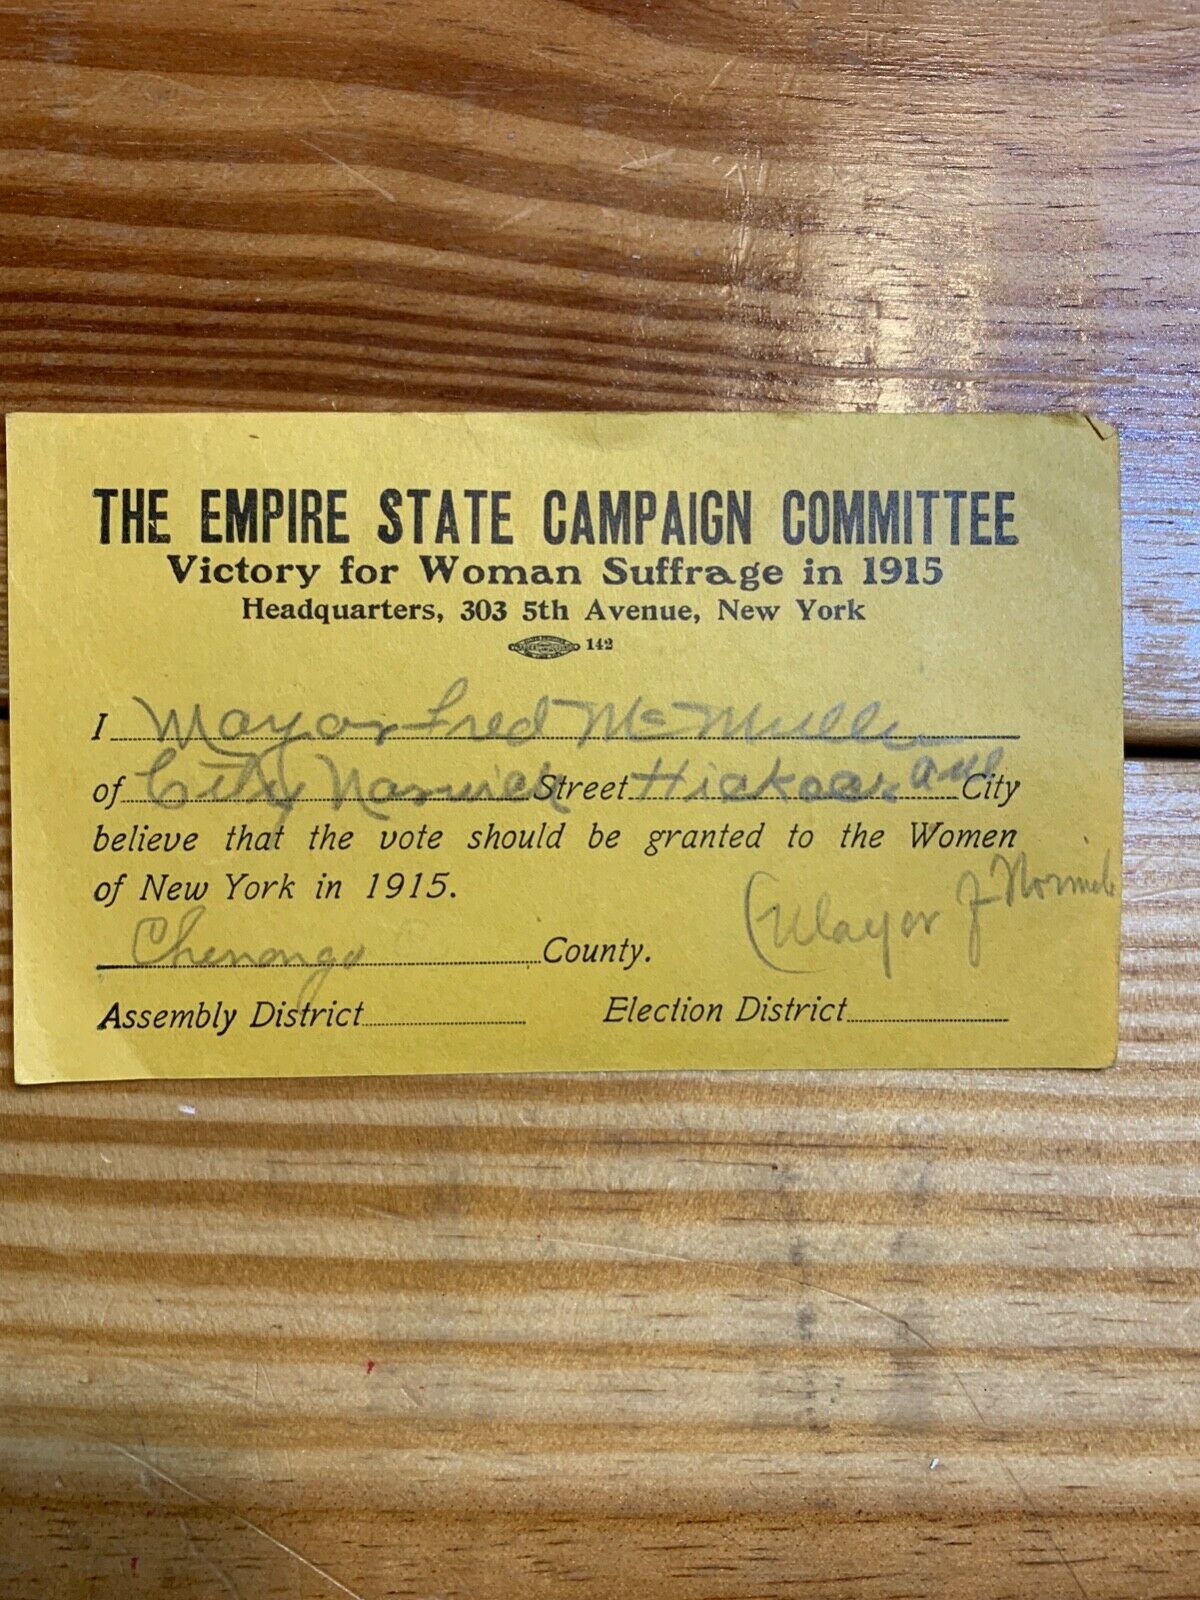 THE EMPIRE STATE CAMPAIGN COMMITTEE
Victory for Woman Suffrage in 1915
Headquarters, 303 5th Avenue, New York
142
I Mayor Fred McMullen
of City Norwich Street Hickok ave City
believe that the vote should be granted to the Women
of New York in 1915.
(Mayor of Norwich
Chenango County.
Assembly District
Election District